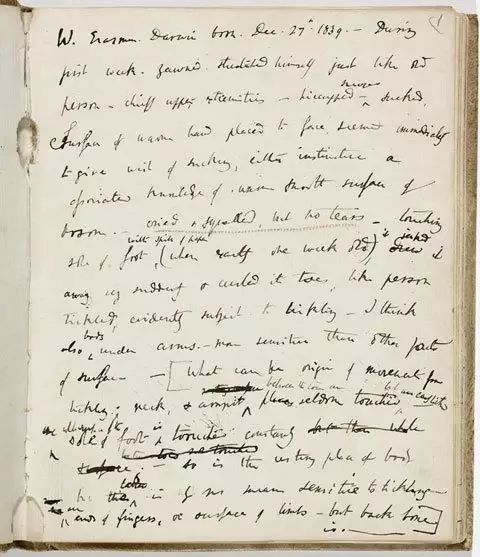 1
W. Erasmus. Darwin born. Dec. 27th 1839. — During
first week. yawned, stretched himself just like old
person — chiefly upper extremities — hiccupped — sneezes sucked,
Surface of warm hand placed to face, seemed immediately
to give wish of sucking, either instinctive or
associated knowledge of warm smooth surface of
bosom. — cried & squalled, but no tears — touching
sole of foot with spill of paper, (when exactly one week old), it jerked it
away very suddenly & curled its toes, like person
tickled, evidently subject to tickling — I think
also body under arms. — more sensitive than other parts
of surface — [What can be origin of movement from
tickling; neck, & armpit between the toes are places seldom touched
sole of foot is touched constantly
— so is the resting place of body
is by no means sensitive to tickling —
ends of fingers, or surface of limbs — but back bone
is. — ]